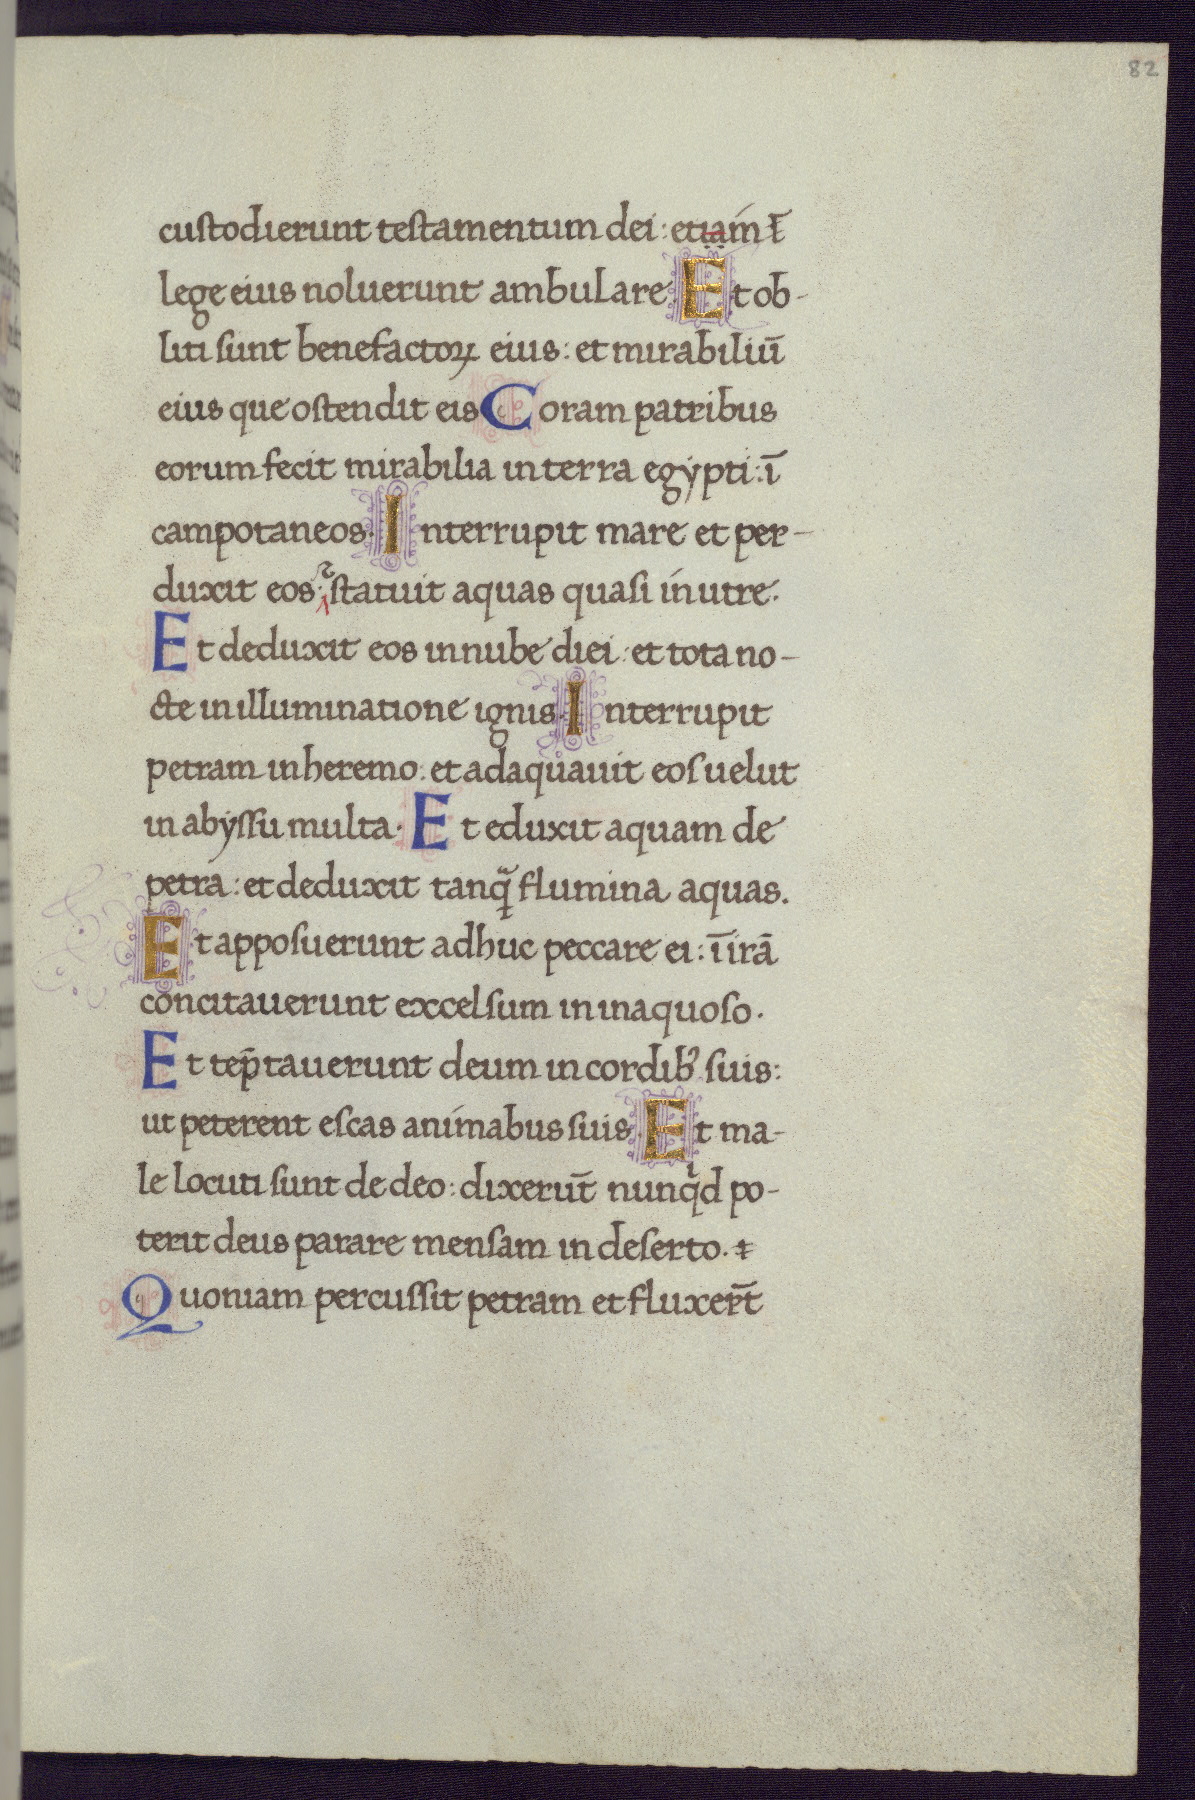 82
custodierunt testamentum dei: etiam ī
lege eius noluerunt ambulare. Et ob-
liti sunt benefactoꝝ eius: et mirabiliū
eius que ostendit eis Coram patribus
eorum fecit mirabilia in terra egypti: ī
campo taneos. Interrupit mare et per-
duxit eos: ⁊ statuit aquas quasi in utre.
Et deduxit eos in nube diei: et tota no-
cte in illuminatione ignis. Interrupit
petram in heremo: et adaquauit eos uelut
in abyssu multa. Et eduxit aquam de
petra: et deduxit tanq̄ flumina aquas.
Et apposuerunt adhuc peccare ei: ī irā
concitauerunt excelsum in inaquoso.
Et tep̄tauerunt deum in cordib' suis:
ut peterent escas animabus suis. Et ma-
le locuti sunt de deo: dixerūt nunqⁱd po-
terit deus parare mensam in deserto.
Quoniam percussit petram et fluxer̄t